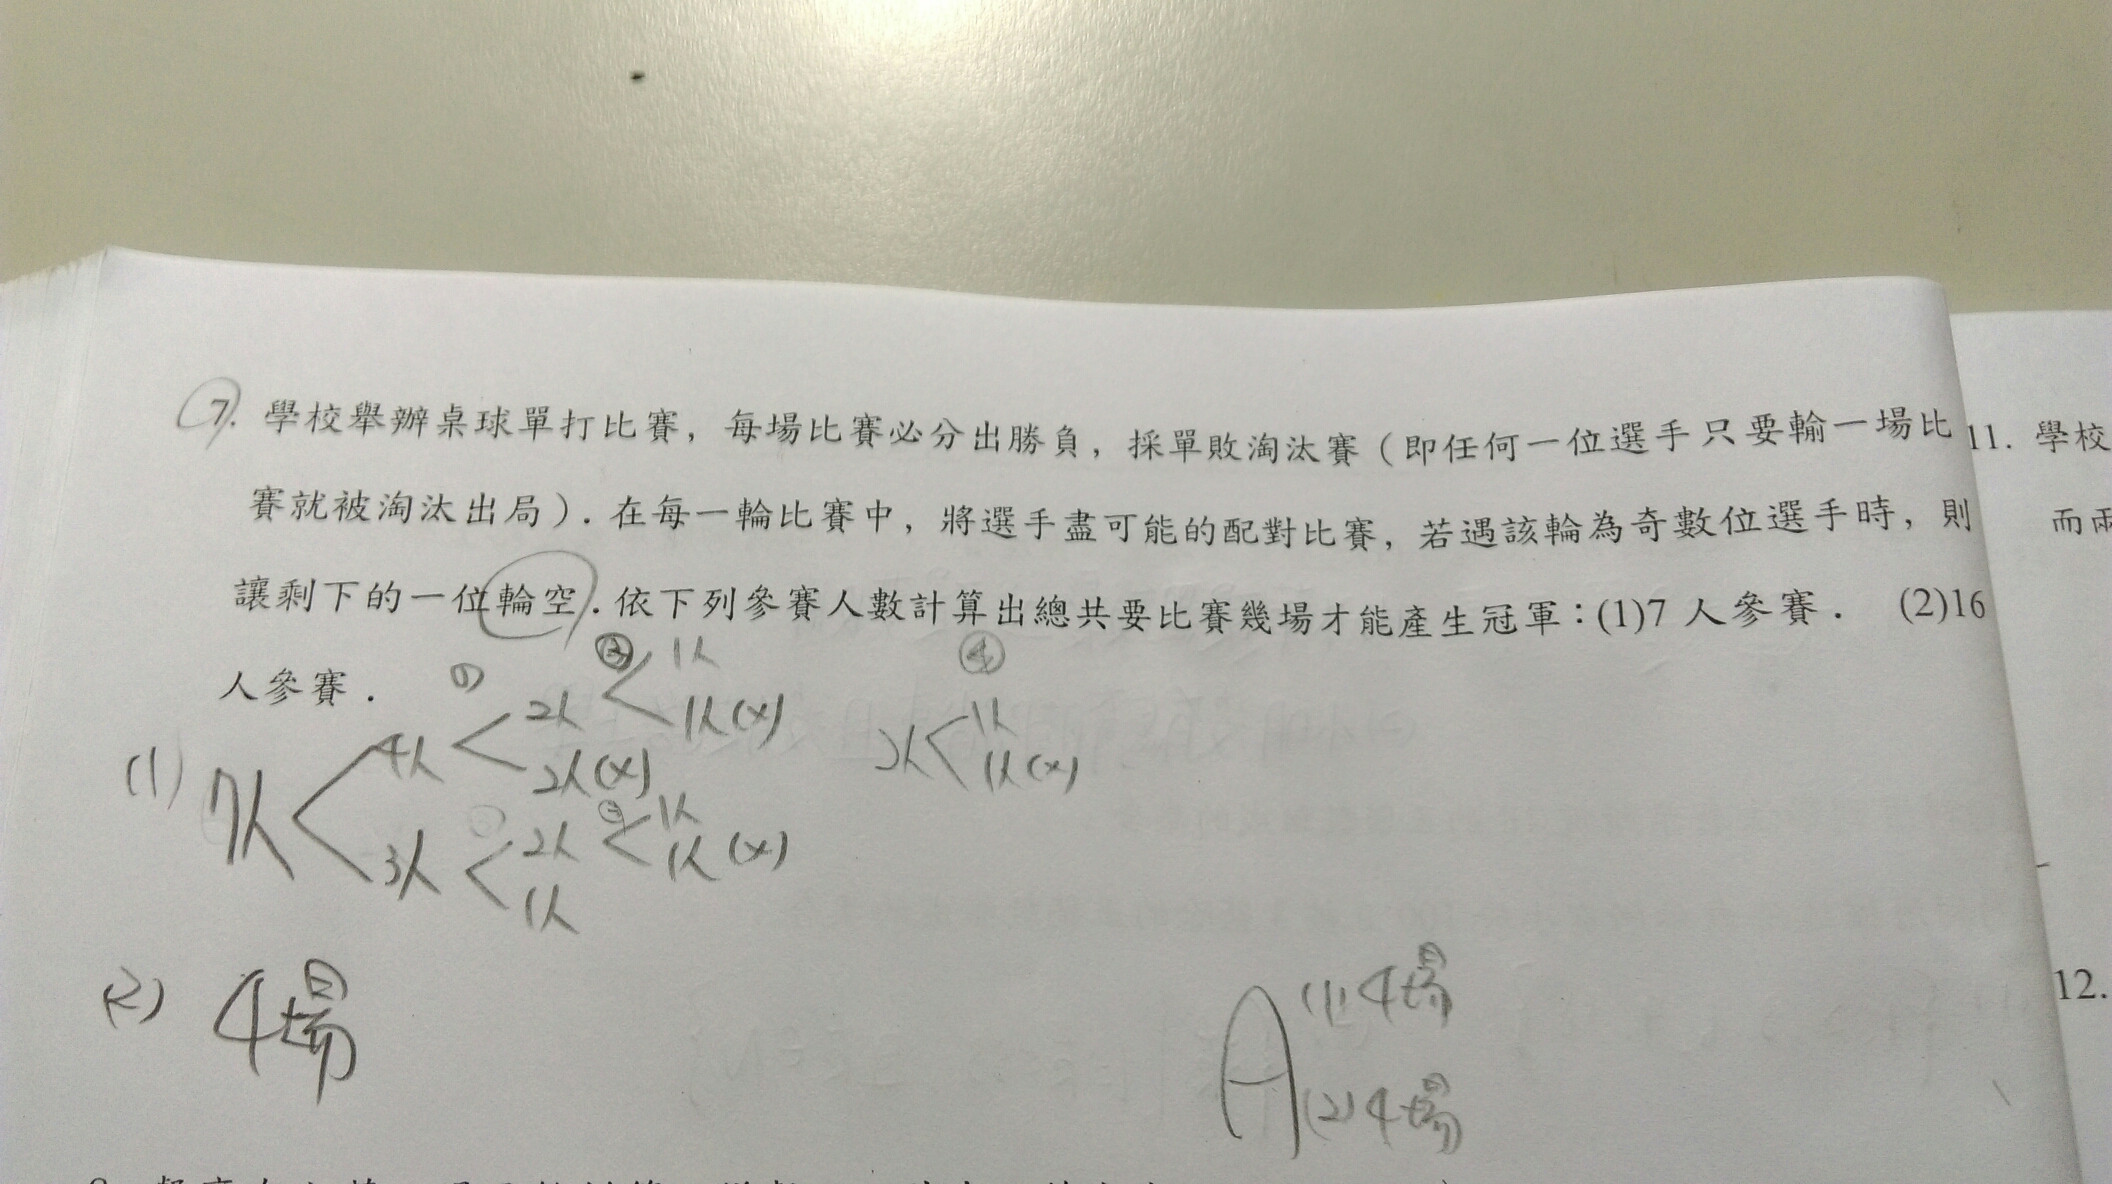 7. 學校舉辦桌球單打比賽，每場比賽必分出勝負，採單敗淘汰賽（即任何一位選手只要輸一場比
賽就被淘汰出局）．在每一輪比賽中，將選手盡可能的配對比賽，若遇該輪為奇數位選手時，則
讓剩下的一位輪空．依下列參賽人數計算出總共要比賽幾場才能產生冠軍：(1)7 人參賽． (2)16
人參賽．
(1) 7人
4人
3人
①
2人
2人(x)
2人
1人
③
1人
1人(x)
1人
1人(x)
④
2人
1人
1人(x)
(2) 4場
A (1) 4場
(2) 4場
11. 學校
而兩
12.